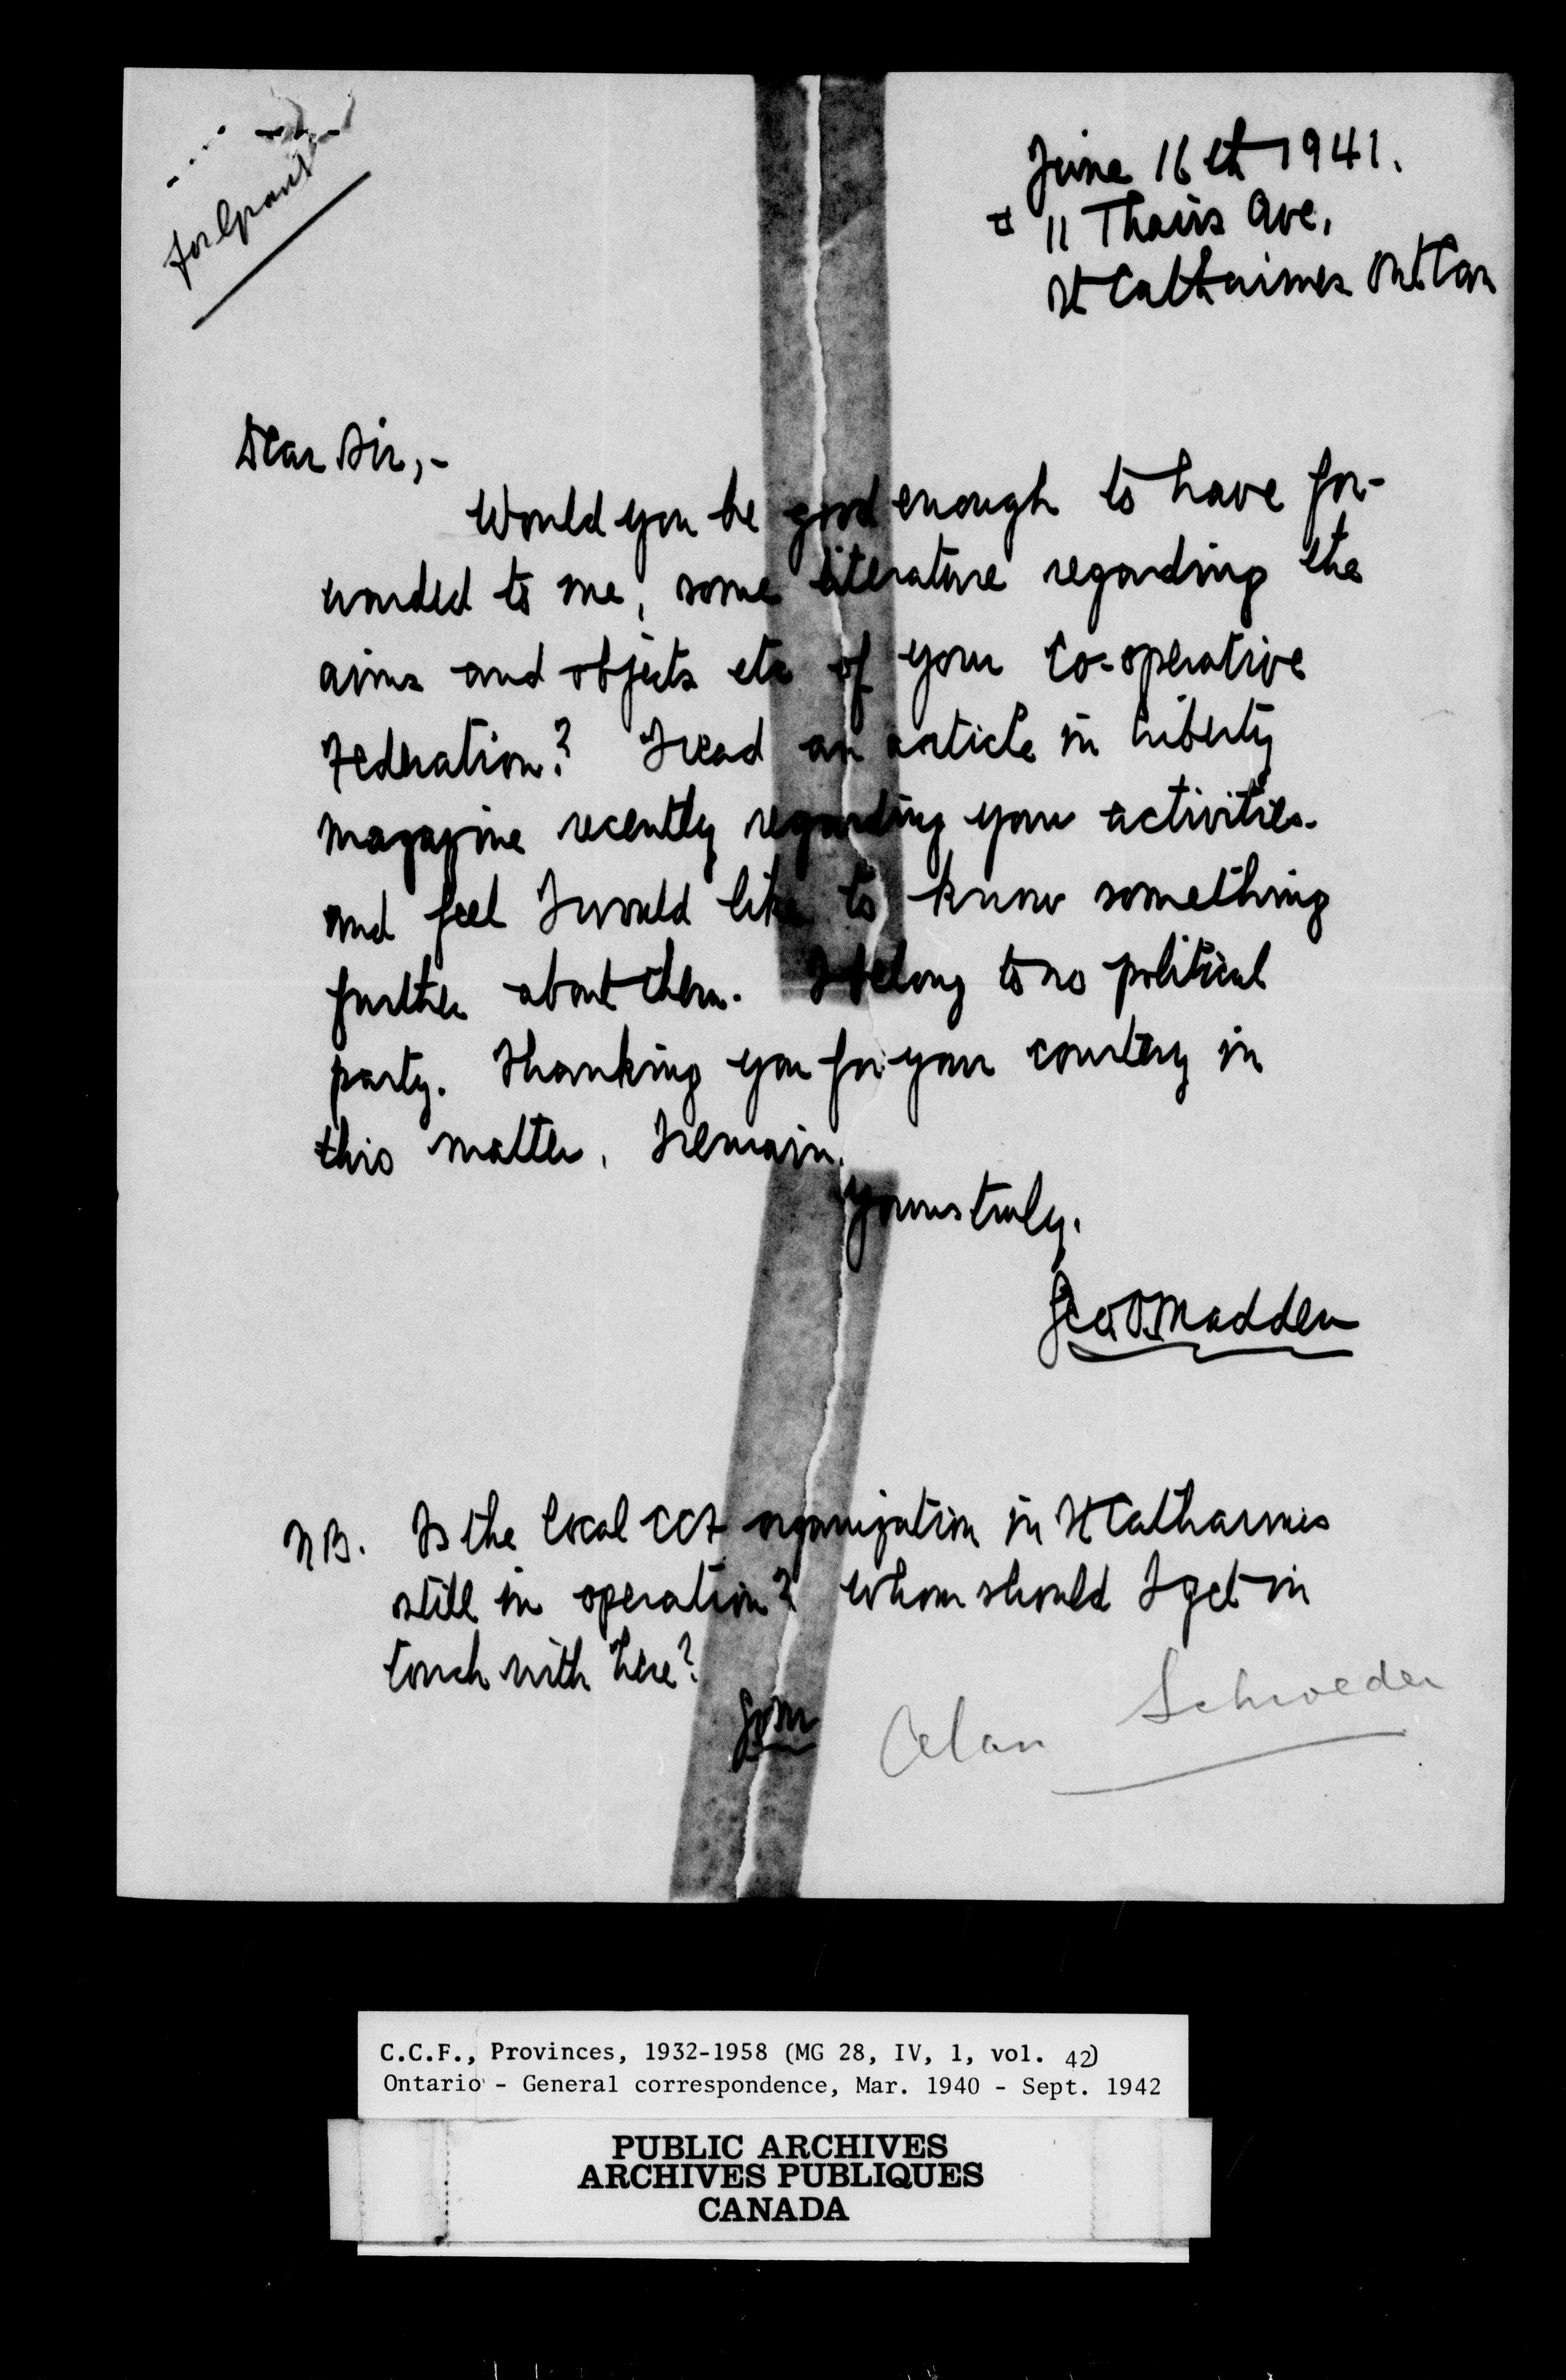 June 16th 1941.
# 11 Thairs Ave,
St Catharines Ont Can
Dear Sir,-
Would you be good enough to have for-
warded to me, some literature regarding the
aims and objects etc of your Co-operative
Federation? I read an article in Liberty
Magazine recently regarding your activities.
and feel I would like to know something
further about them. I belong to no political
party. Thanking you for your courtesy in
this matter, I remain.
Yours truly,
Madden
NB. Is the local CCF organization in St Catharines
still in operation? Whom should I get in
touch with here?
Alan Schroeder
C.C.F., Provinces, 1932-1958 (MG 28, IV, 1, vol. 42)
Ontario - General correspondence, Mar. 1940 - Sept. 1942
PUBLIC ARCHIVES
ARCHIVES PUBLIQUES
CANADA